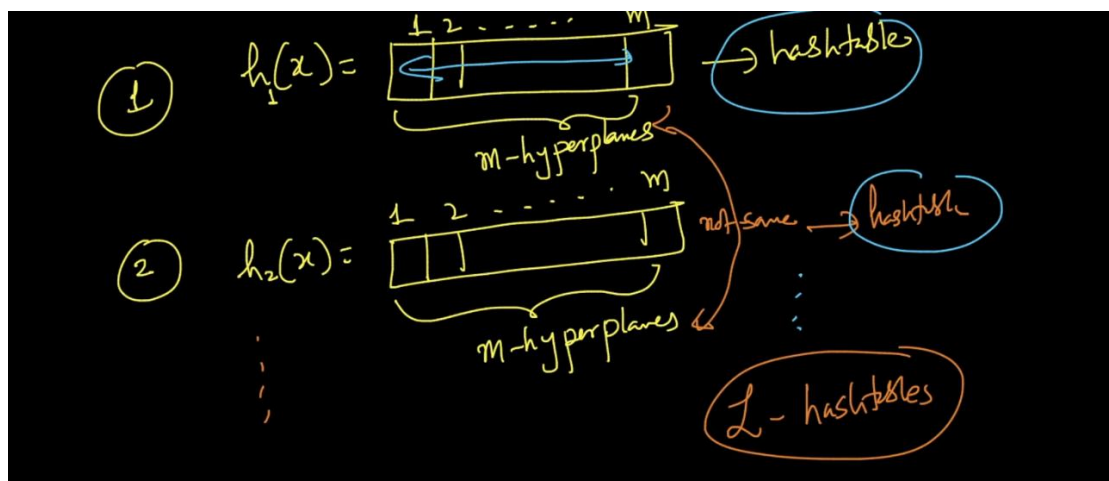 1 2 . . . . . m
1 h₁(x) = → hashtable
m-hyperplanes
1 2 - . . . . . m
not same → hashtable
2 h₂(x) =
m-hyperplanes
L - hashtables